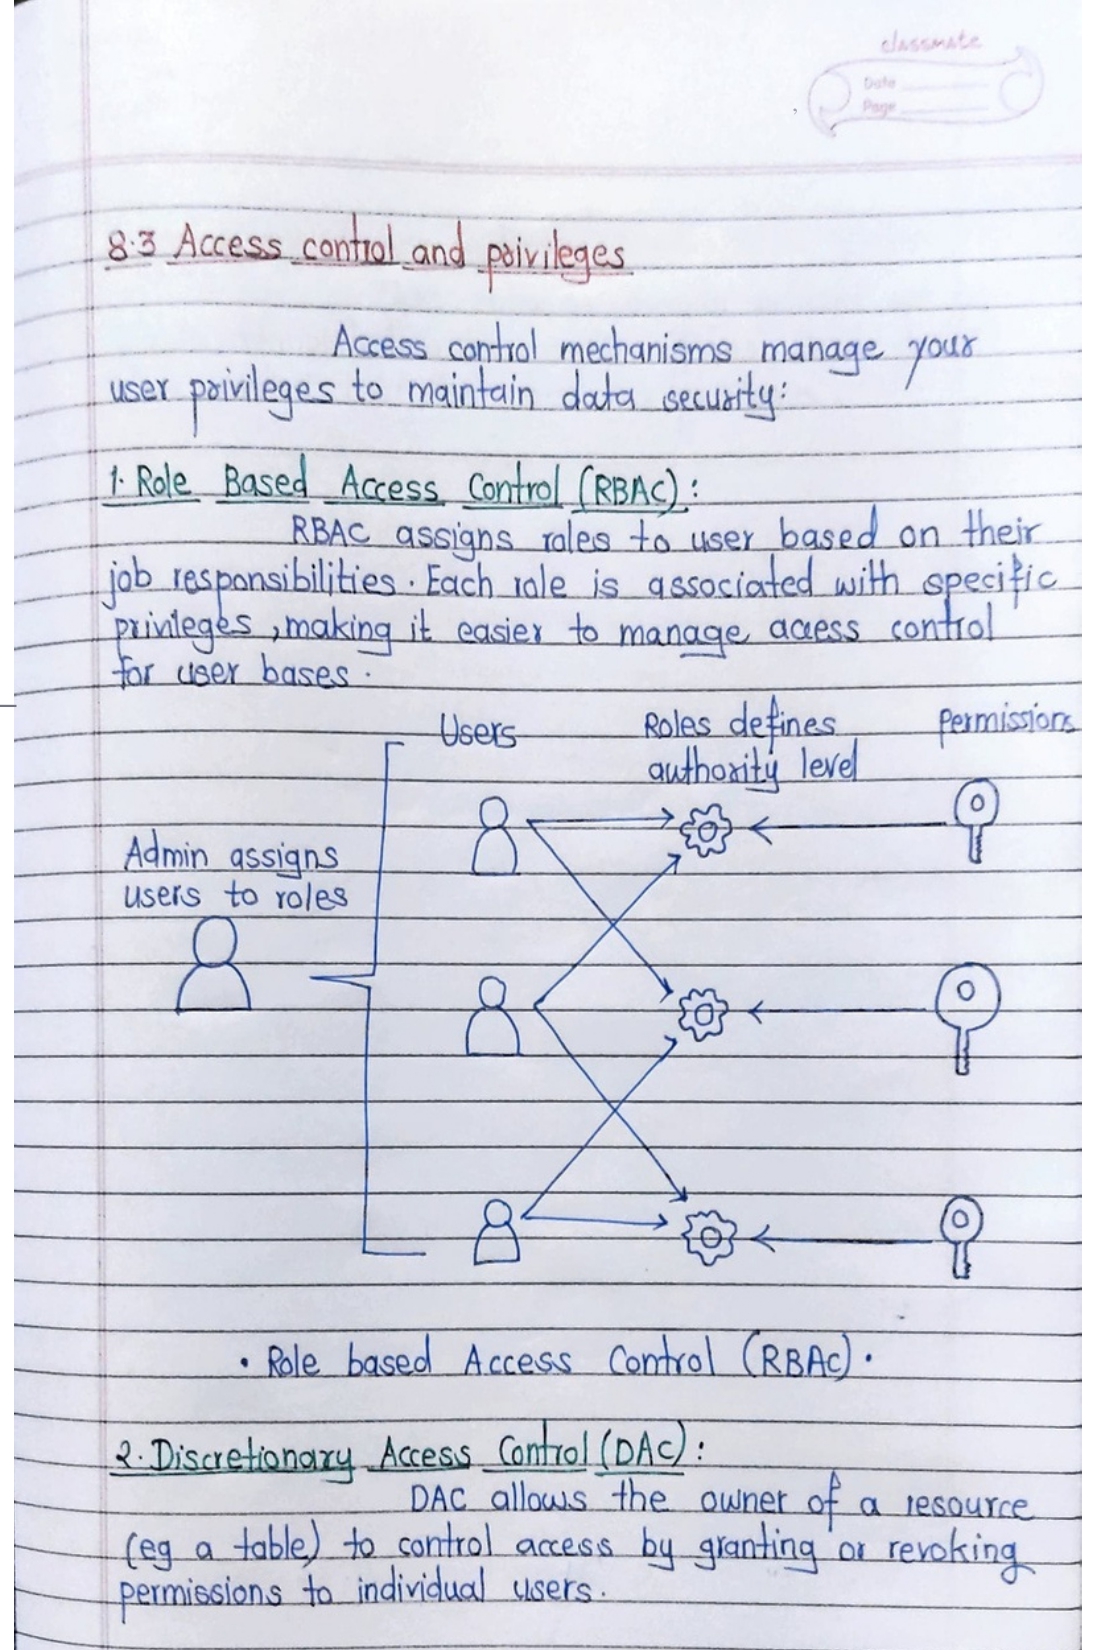 classmate
Date
Page
8.3 Access control and privileges
Access control mechanisms manage your
user privileges to maintain data security:
1. Role Based Access Control (RBAC):
RBAC assigns roles to user based on their
job responsibilities. Each role is associated with specific
privileges, making it easier to manage access control
for user bases.
Users
Roles defines
authority level
Permissions
Admin assigns
users to roles
• Role based Access Control (RBAC).
2. Discretionary Access Control (DAC):
DAC allows the owner of a resource
(eg a table) to control access by granting or revoking
permissions to individual users.